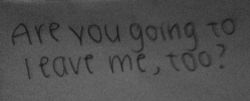 Are you going to
leave me, too?